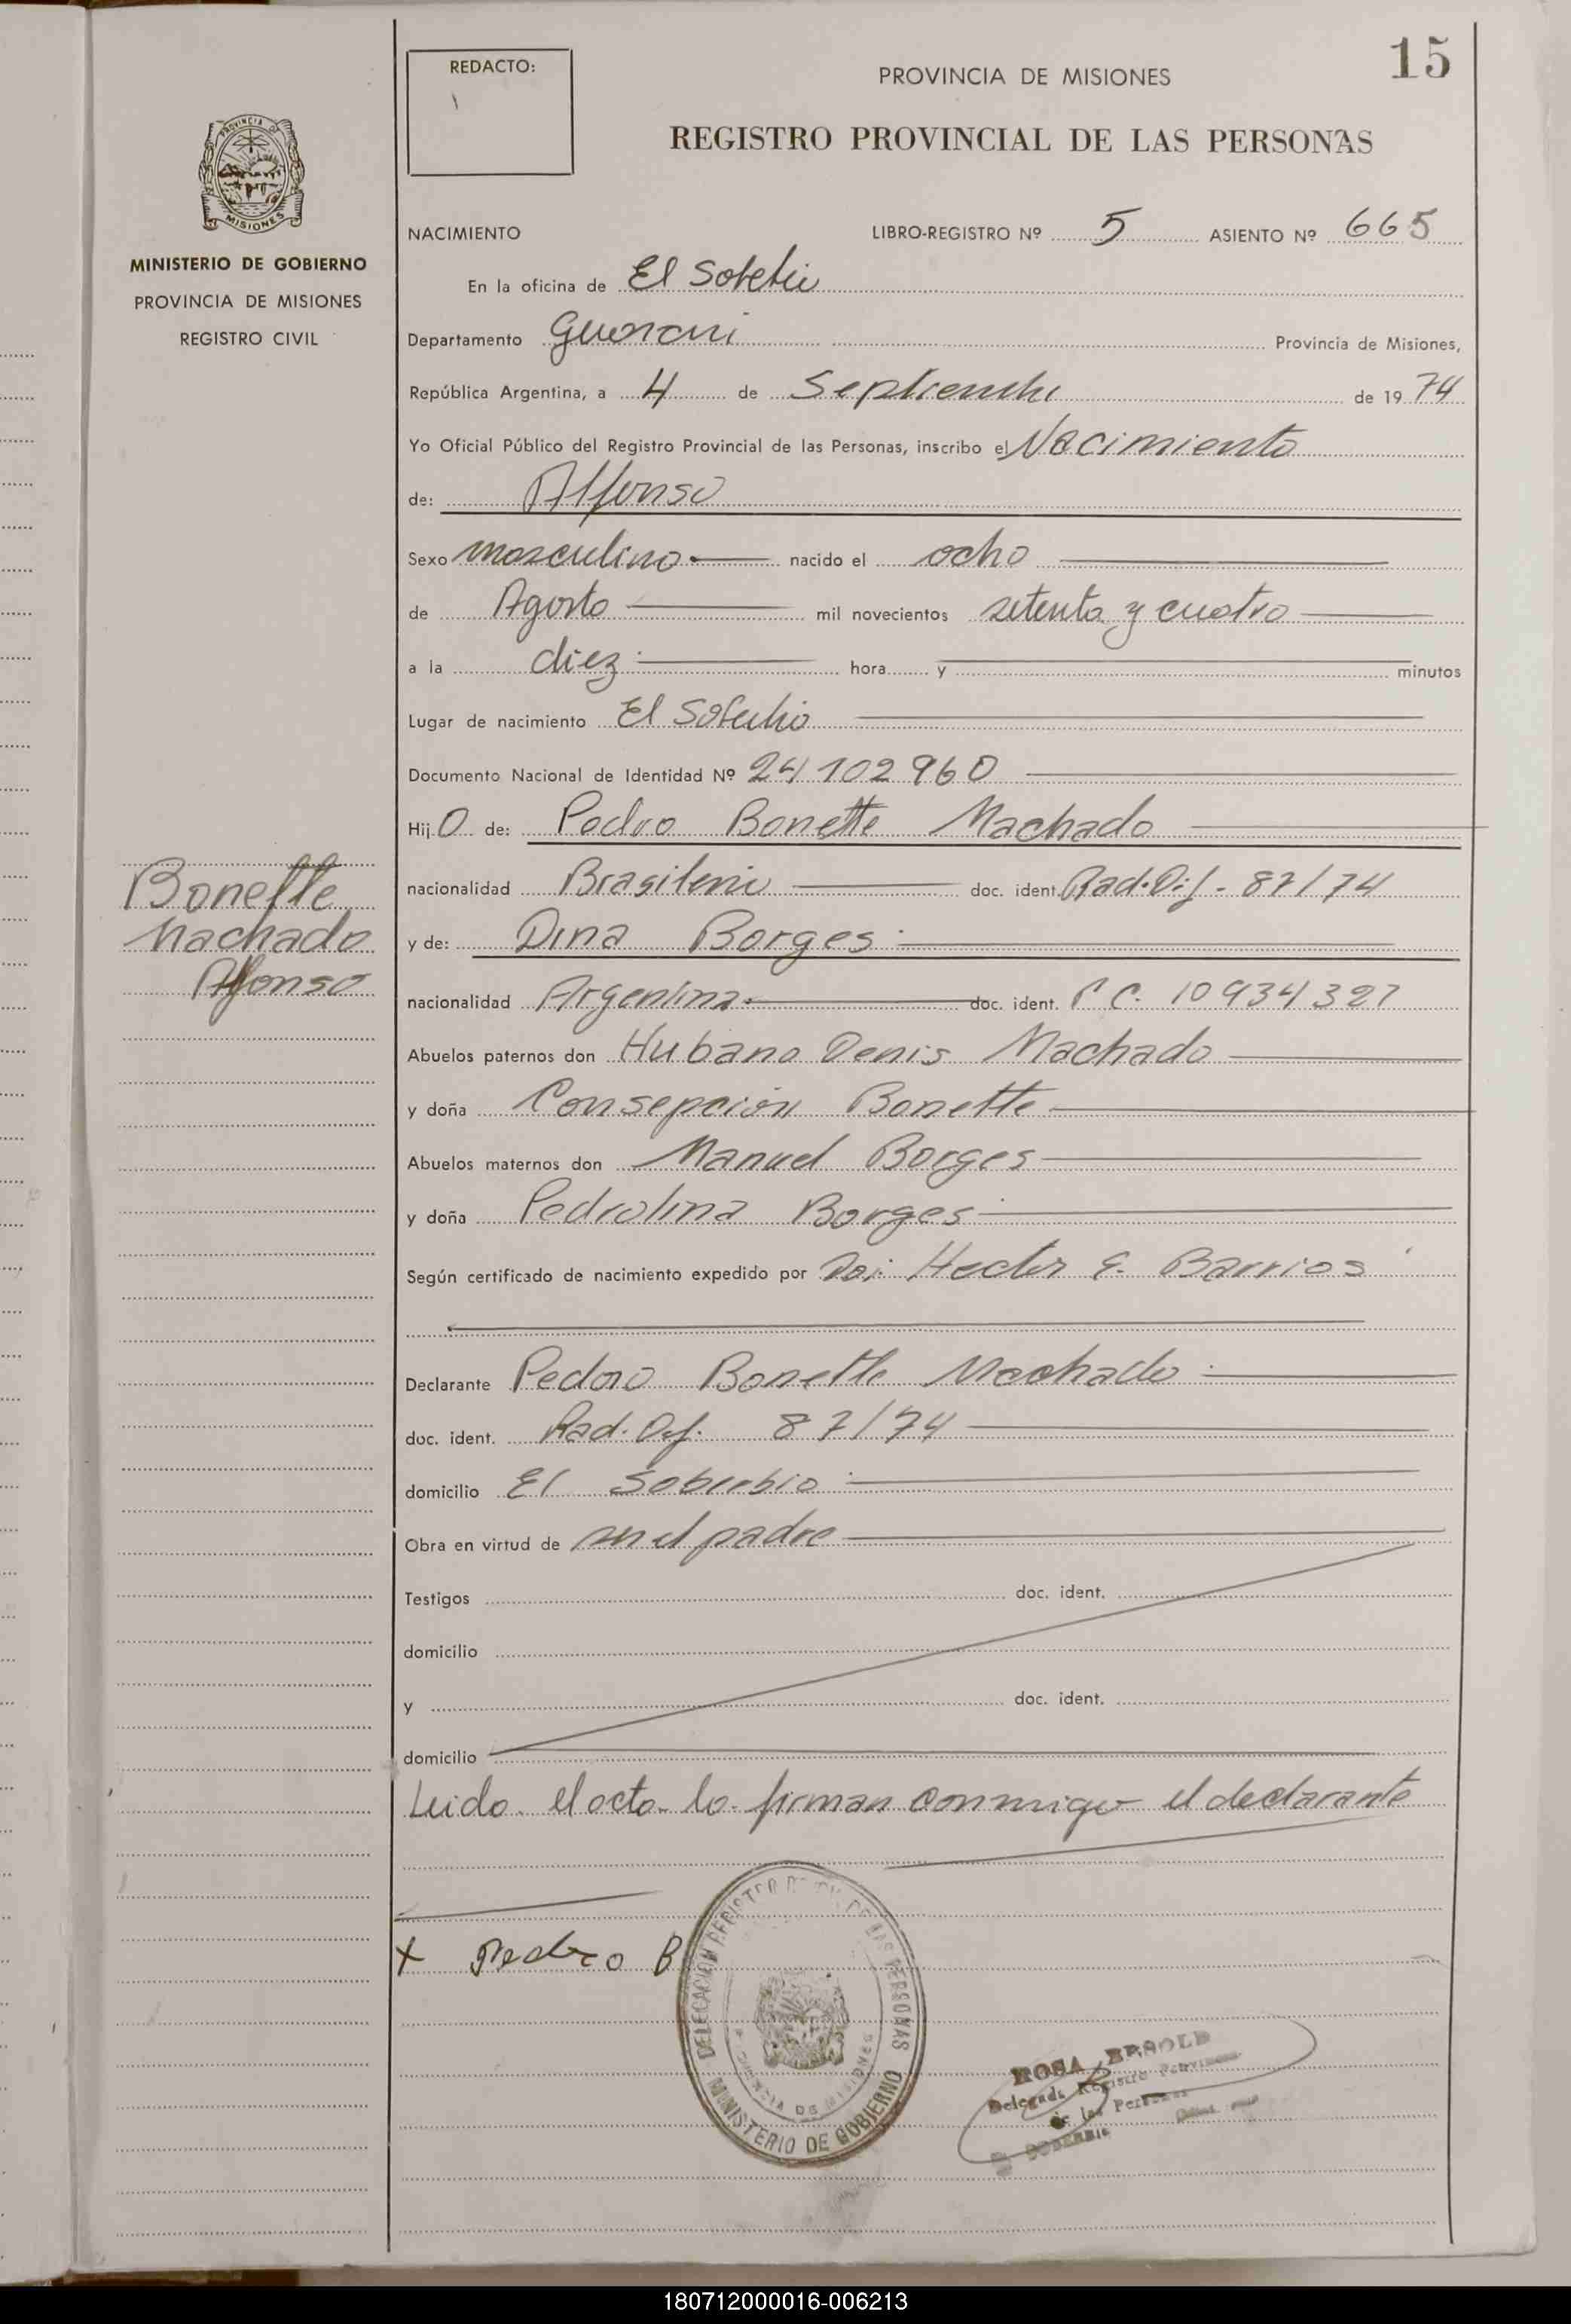 15
REDACTO:
PROVINCIA DE MISIONES
REGISTRO PROVINCIAL DE LAS PERSONAS
PROVINCIA DE
MISIONES
MINISTERIO DE GOBIERNO
PROVINCIA DE MISIONES
REGISTRO CIVIL
NACIMIENTO LIBRO-REGISTRO Nº 5 ASIENTO Nº 665
En la oficina de El
Departamento Guarani Provincia de Misiones,
República Argentina, a 4 de Septiembre de 1974
Yo Oficial Público del Registro Provincial de las Personas, inscribo el Nacimiento
de: Alfonso
Sexo masculino nacido el ocho
de Agosto mil novecientos setenta y cuatro
a la diez hora y minutos
Lugar de nacimiento El
Documento Nacional de Identidad Nº 24102960
Hijo de: Pedro Bonette Machado
nacionalidad doc. ident. Rad. 87/74
y de: Dina Borges
nacionalidad Argentina doc. ident. C. 10934327
Abuelos paternos don Hubano Denis Machado
y doña Consepción Bonette
Abuelos maternos don Manuel Borges
y doña Pedrolina Borges
Según certificado de nacimiento expedido por Hector E. Barrios
Declarante Pedro Bonette Machado
doc. ident. Rad. 87/74
domicilio El Soberbio
Obra en virtud de ser el padre
Testigos doc. ident.
domicilio
y doc. ident.
domicilio
Leido el acta lo firman conmigo el declarante
Bonette
Machado
Alfonso
x Pedro B
DELEGACION REGISTRO DE LAS PERSONAS
PROVINCIA DE MISIONES
MINISTERIO DE GOBIERNO
ROSA
Delegada Registro Provincial
de las Personas
SOBERBIO
180712000016-006213